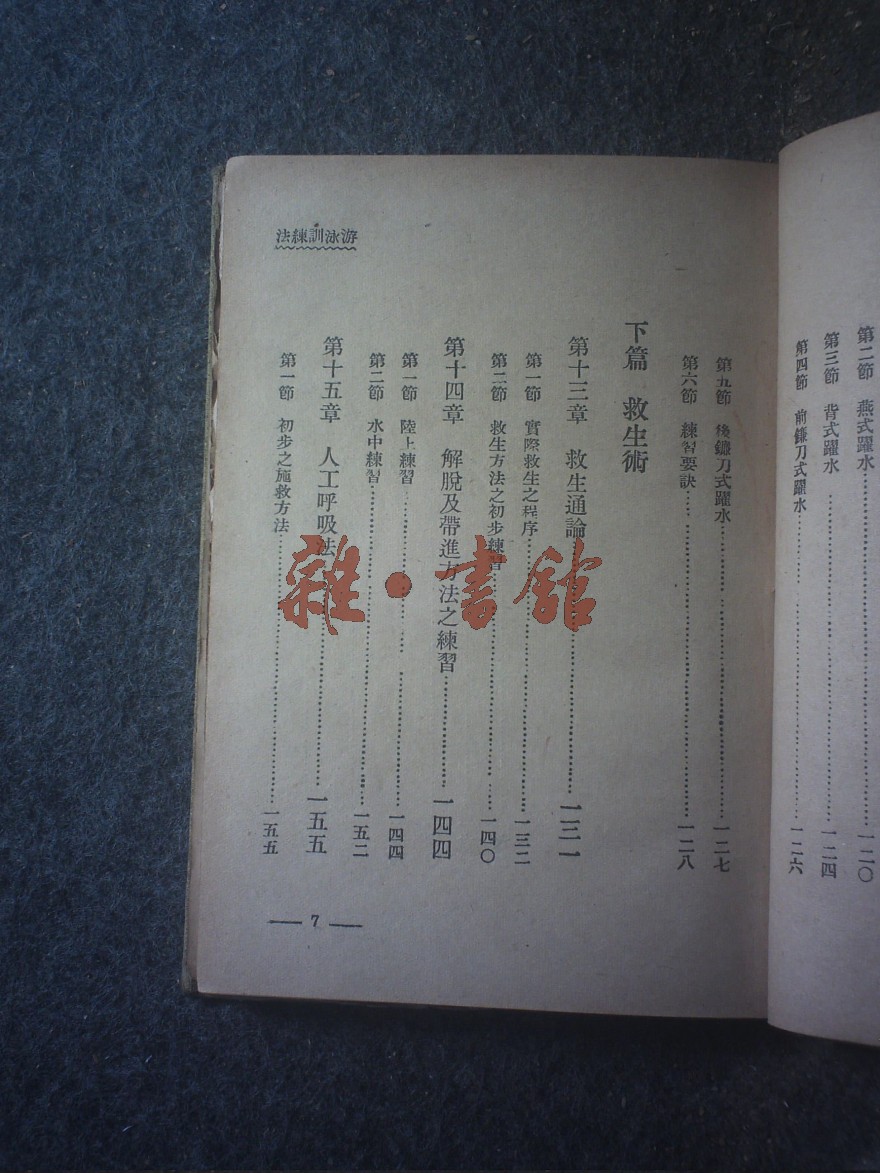 第二節　燕式躍水……一二〇
第三節　背式躍水……一二四
第四節　前鐮刀式躍水……一二六
游泳訓練法
第五節　後鐮刀式躍水……一二七
第六節　練習要訣……一二八
下篇　救生術
第十三章　救生通論……一三一
第一節　實際救生之程序……一三二
第二節　救生方法之初步練習……一四〇
第十四章　解脫及帶進方法之練習……一四四
第一節　陸上練習……一四四
第二節　水中練習……一五二
第十五章　人工呼吸法……一五五
第一節　初步之施救方法……一五五
7
雜·書館